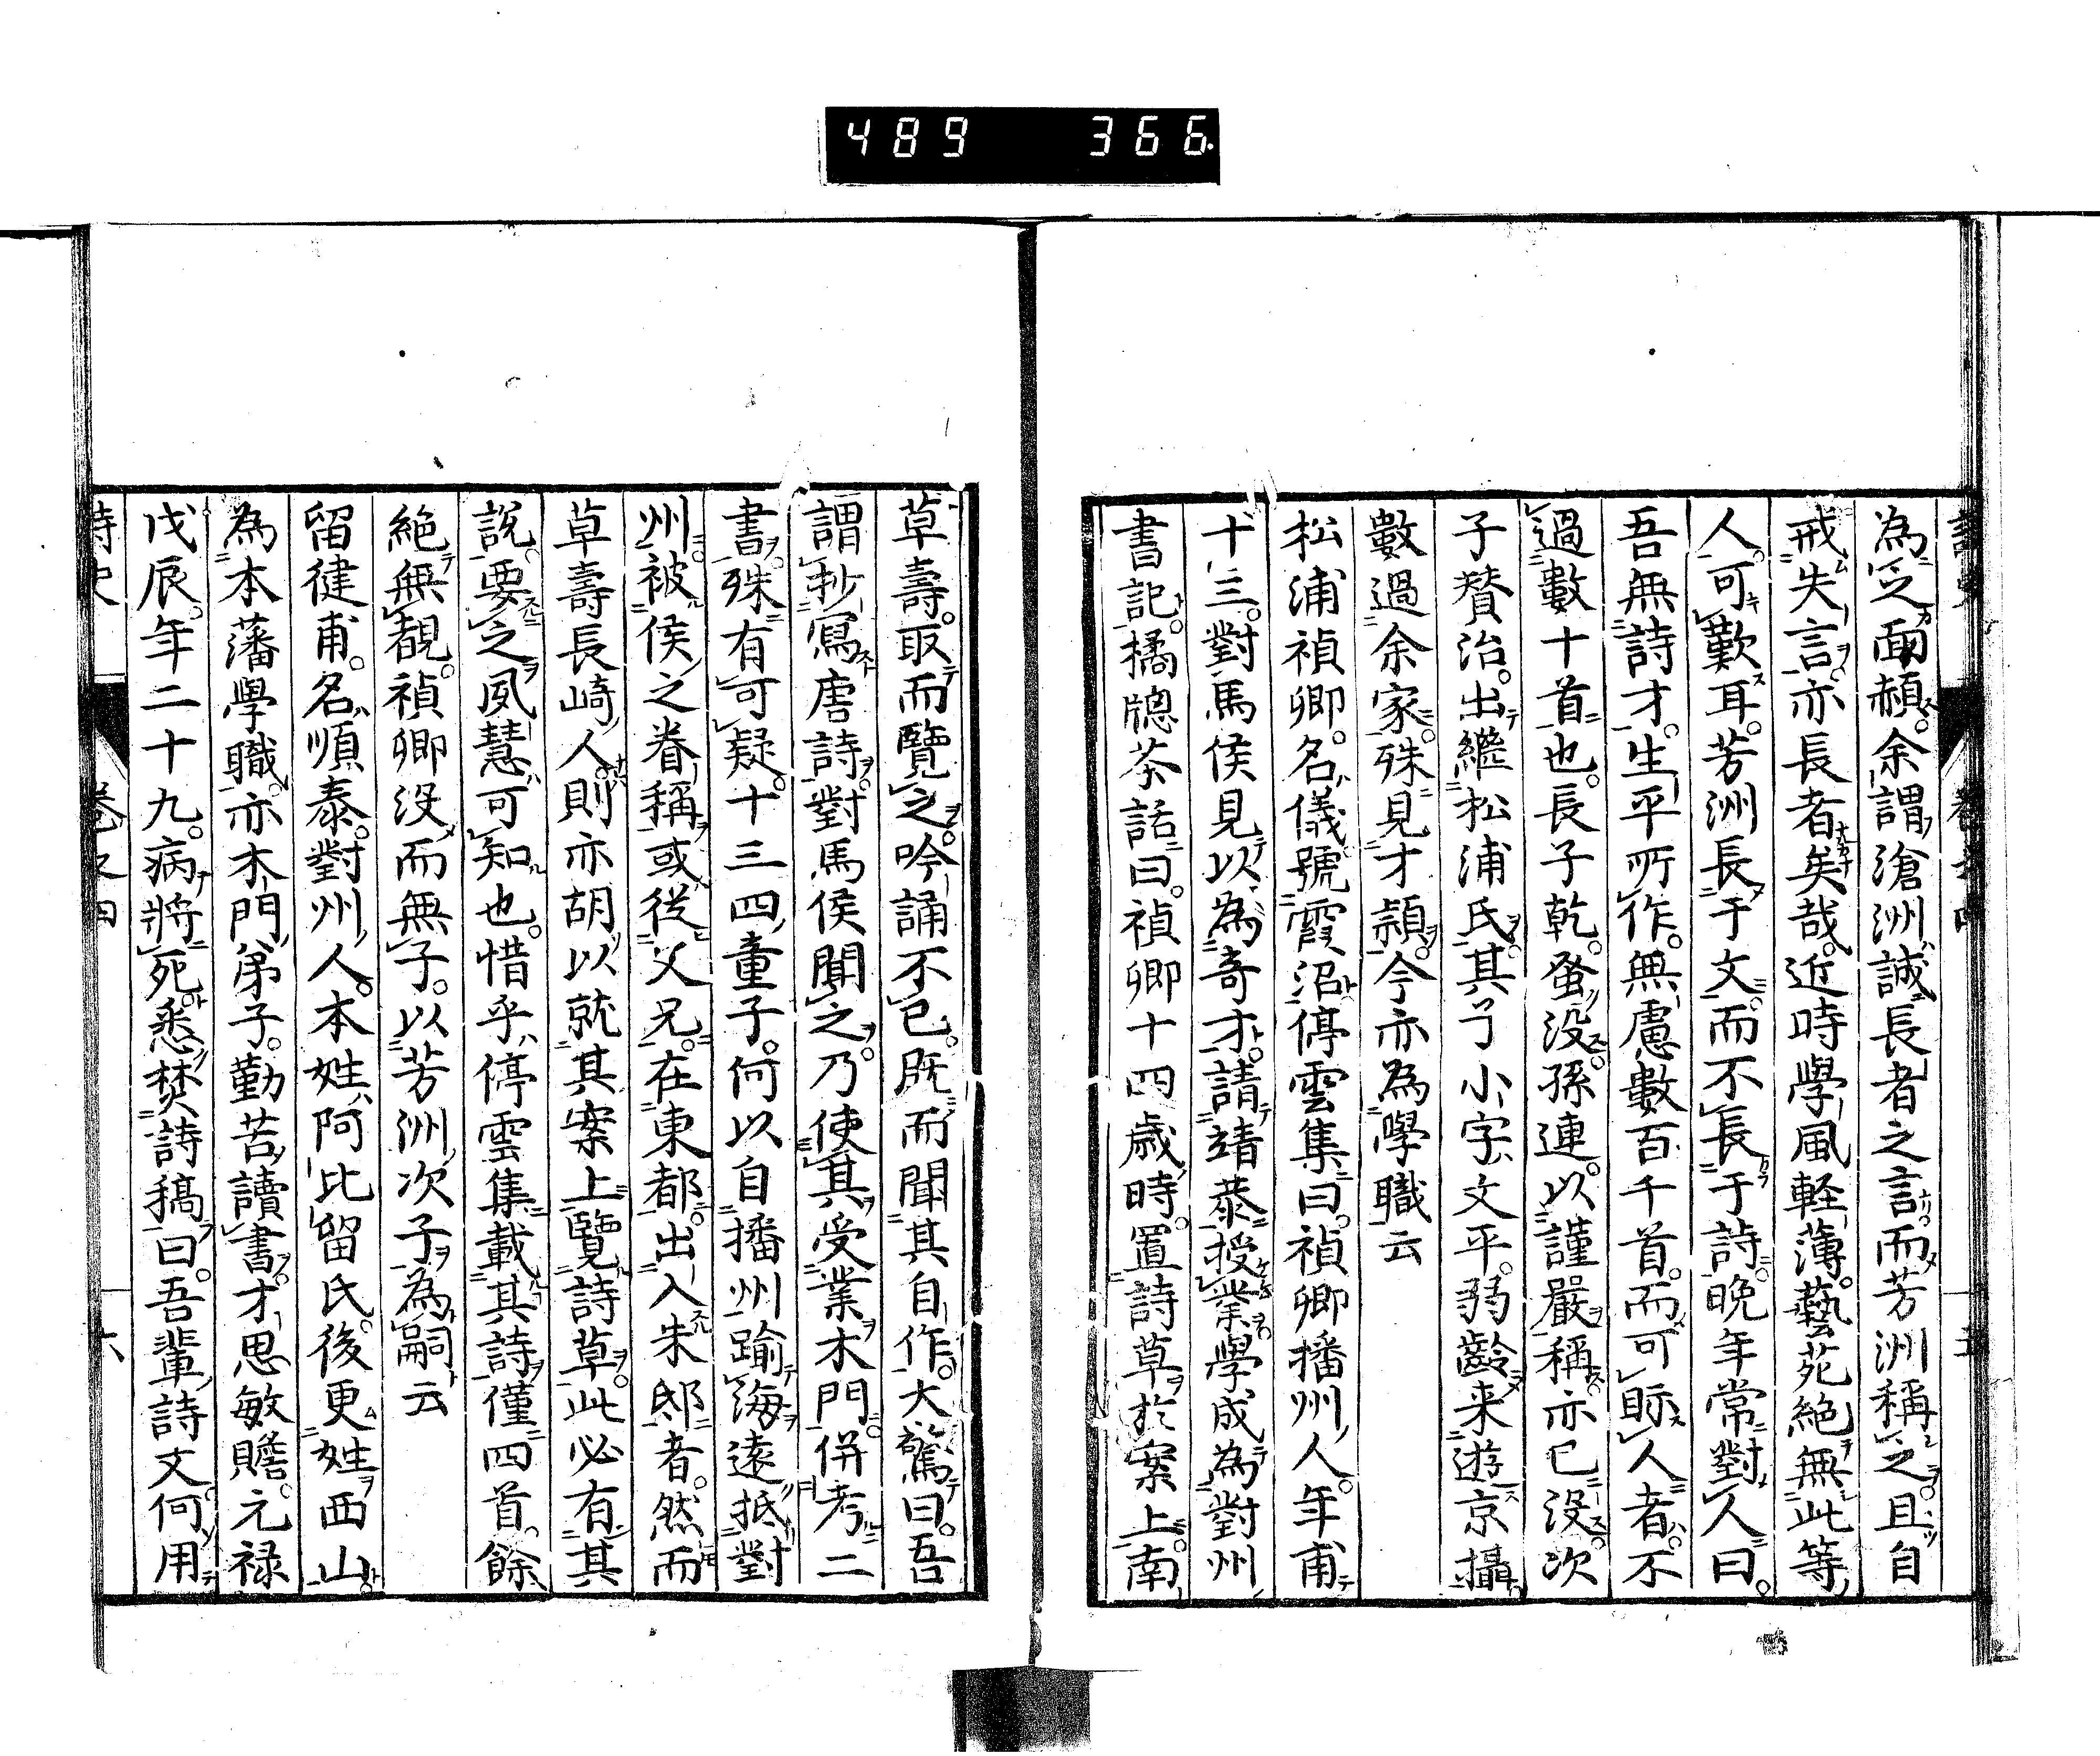 489 366
為之面赬。余謂滄洲誠長者之言而芳洲稱之。且自
戒失言。亦長者矣哉。近時學風軽薄。藝苑絶無此等
人。可歎耳。芳洲長于文。而不長于詩。晩年常對人曰。
吾無詩才。生平所作。無慮數百千首。而可眎人者。不
過數十首也。長子乾。蚤没。孫連。以謹嚴稱。亦已没。次
子賛治。出繼松浦氏。其子小字文平。弱齡来遊京攝。
數過余家。殊見才頴。今亦為學職云
松浦禎卿。名儀。號霞沼。停雲集曰。禎卿播州人。年甫
十三。對馬侯見以為奇才。請靖恭授業。學成為對州
書記。橘牕茶話曰。禎卿十四歳時。置詩草於案上。南
草壽。取而覽之。吟誦不已。既而聞其自作。大驚曰。吾
謂抄寫唐詩。對馬侯聞之。乃使其受業木門。併考二
書。殊有可疑。十三四童子。何以自播州踰海遠抵對
州。被侯之眷稱。或從父兄。在東都。出入朱邸者。然而
草壽長崎人。則亦胡以就其案上覽詩草。此必有其
説。要之夙慧可知也。惜乎停雲集載其詩僅四首。餘
絶無覩。禎卿没而無子。以芳洲次子為嗣云
留健甫。名順泰。對州人。本姓阿比留氏。後更姓西山。
為本藩學職。亦木門弟子。勤苦讀書。才思敏贍。元禄
戊辰。年二十九。病將死。悉焚詩稿曰。吾輩詩文何用
詩史 卷之四 六